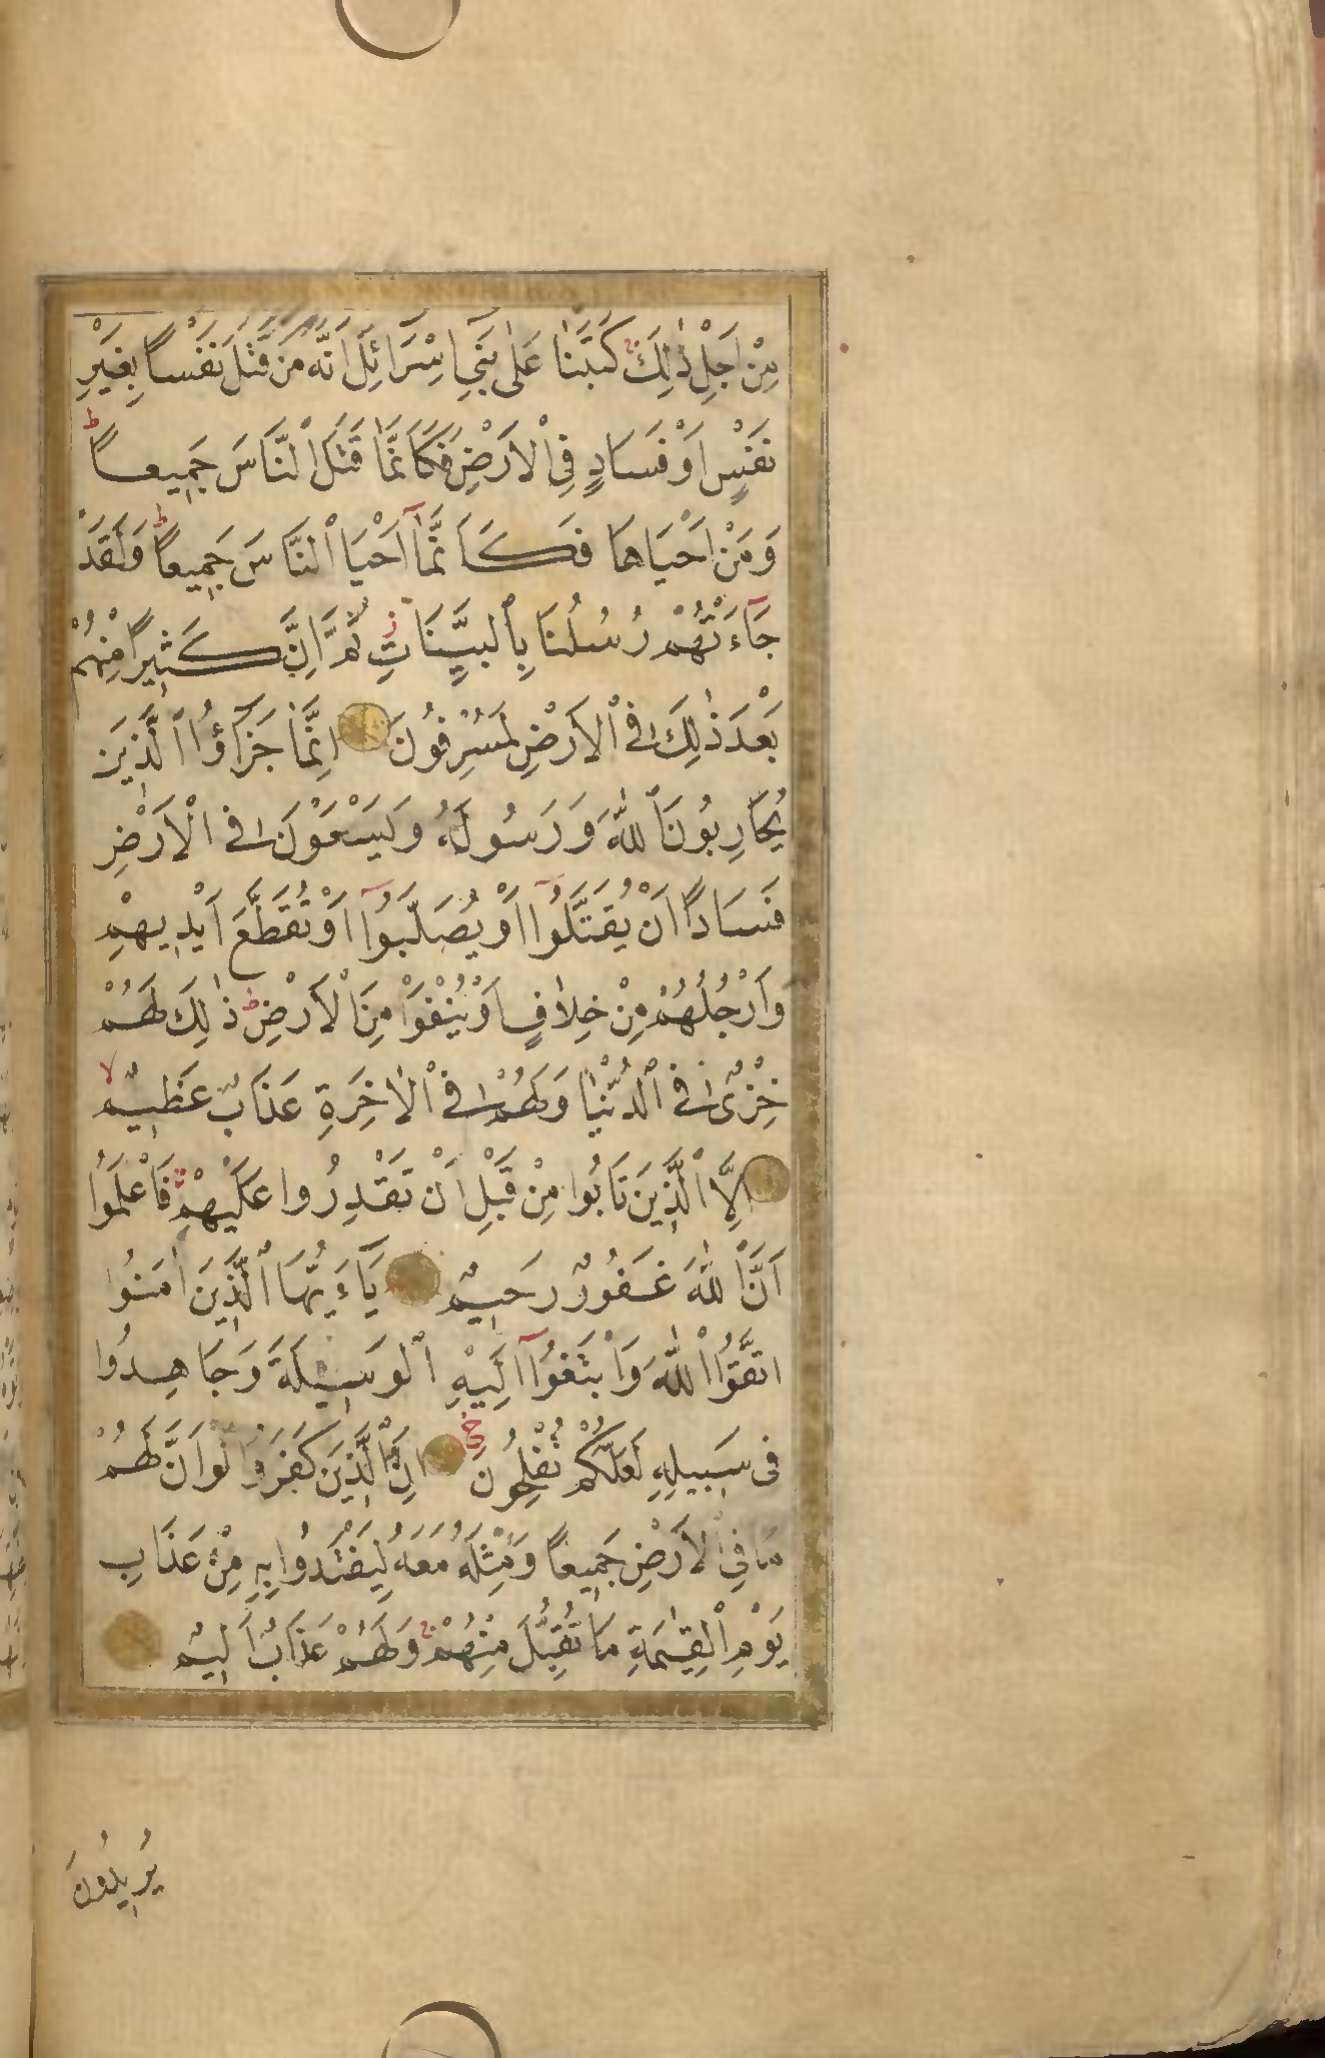 مِنْ اَجْلِ ذٰلِكَ كَتَبْنَا عَلٰى بَنِي اِسْرَائِلَ اَنَّهُ مَنْ قَتَلَ نَفْسًا بِغَيْرِ
نَفْسٍ اَوْ فَسَادٍ فِى الْاَرْضِ فَكَاَنَّمَا قَتَلَ النَّاسَ جَمِيعًا ط
وَمَنْ اَحْيَاهَا فَكَاَنَّمَا اَحْيَا النَّاسَ جَمِيعًا ط وَلَقَدْ
جَاءَتْهُمْ رُسُلُنَا بِالْبَيِّنَاتِ ز ثُمَّ اِنَّ كَثِيرًا مِنْهُمْ
بَعْدَ ذٰلِكَ فِى الْاَرْضِ لَمُسْرِفُونَ اِنَّمَا جَزَآؤُا الَّذِينَ
يُحَارِبُونَ اللّٰهَ وَرَسُولَهُ وَيَسْعَوْنَ فِى الْاَرْضِ
فَسَادًا اَنْ يُقَتَّلُوٓا اَوْ يُصَلَّبُوٓا اَوْ تُقَطَّعَ اَيْدِيهِمْ
وَاَرْجُلُهُمْ مِنْ خِلَافٍ اَوْ يُنْفَوْا مِنَ الْاَرْضِ ط ذٰلِكَ لَهُمْ
خِزْىٌ فِى الدُّنْيَا وَلَهُمْ فِى الْاٰخِرَةِ عَذَابٌ عَظِيمٌ لا
اِلَّا الَّذِينَ تَابُوا مِنْ قَبْلِ اَنْ تَقْدِرُوا عَلَيْهِمْ فَاعْلَمُوا
اَنَّ اللّٰهَ غَفُورٌ رَحِيمٌ يَآءَيُّهَا الَّذِينَ اٰمَنُوا
اتَّقُوا اللّٰهَ وَابْتَغُوٓا اِلَيْهِ الْوَسِيلَةَ وَجَاهِدُوا
فِى سَبِيلِهِ لَعَلَّكُمْ تُفْلِحُونَ اِنَّ الَّذِينَ كَفَرُوا لَوْ اَنَّ لَهُمْ
مَا فِى الْاَرْضِ جَمِيعًا وَمِثْلَهُ مَعَهُ لِيَفْتَدُوا بِهِ مِنْ عَذَابِ
يَوْمِ الْقِيٰمَةِ مَا تُقُبِّلَ مِنْهُمْ وَلَهُمْ عَذَابٌ اَلِيمٌ
يُرِيدُونَ